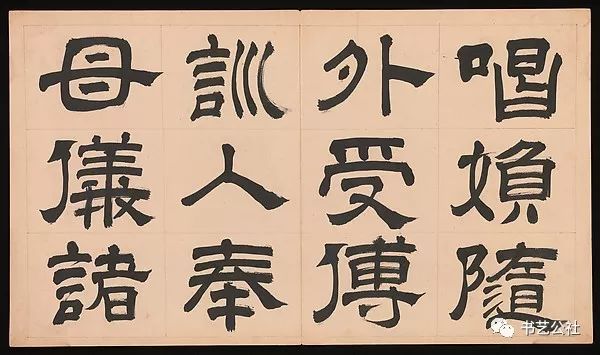 唱媍隨
外受傅
訓入奉
母儀諸
书艺公社